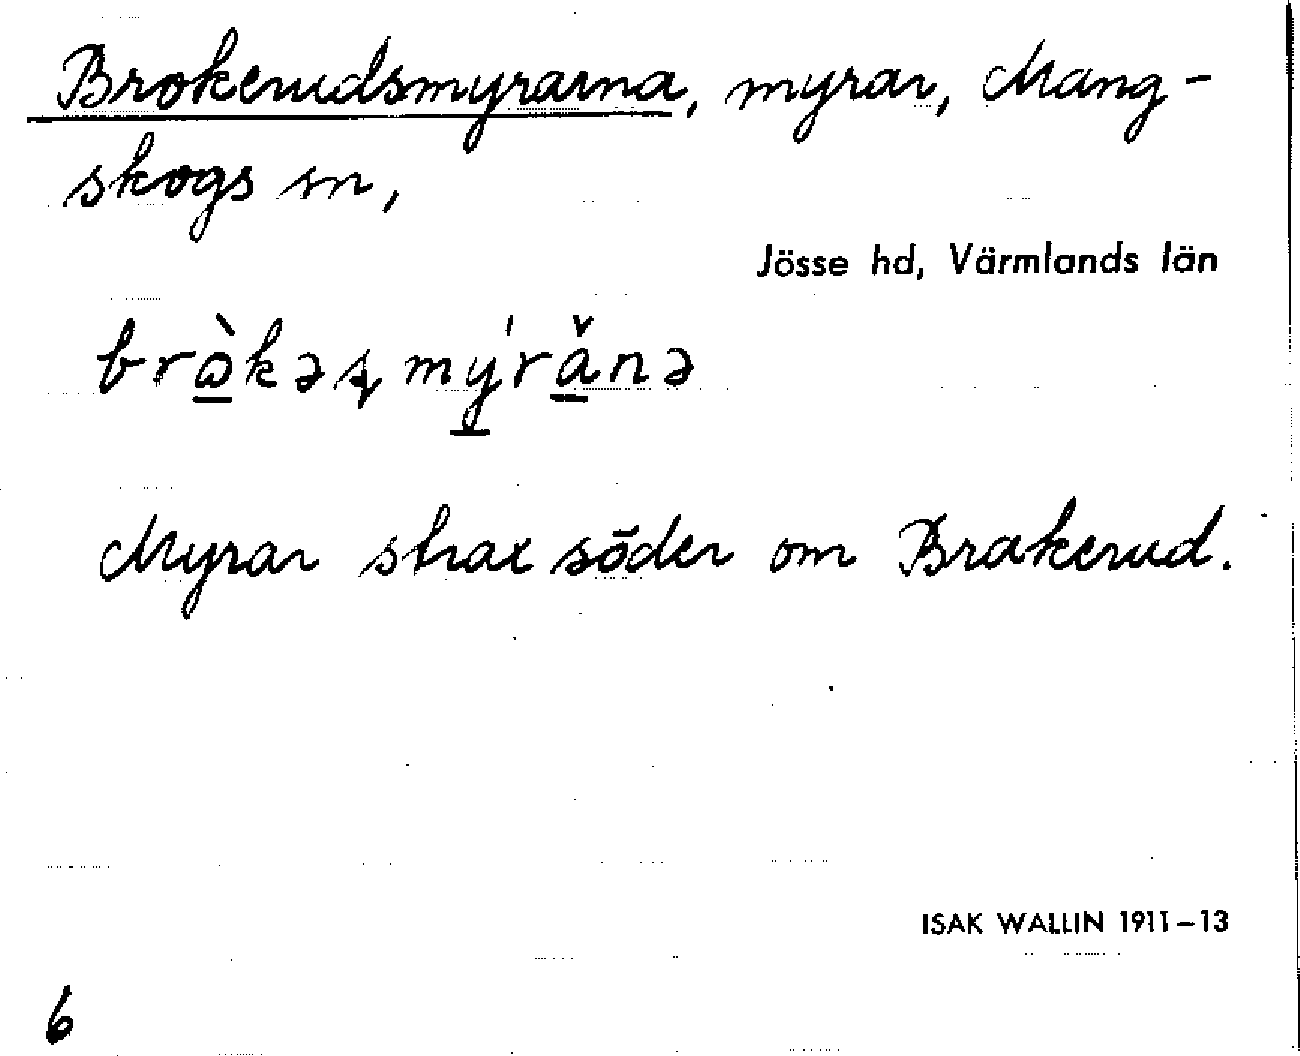 Brokerudsmyrarna, myrar, Mang-
skogs sn,
Jösse hd, Värmlands län
brὼkəʂmýrǎnə
Myrar strax söder om Brakerud.
ISAK WALLIN 1911–13
6